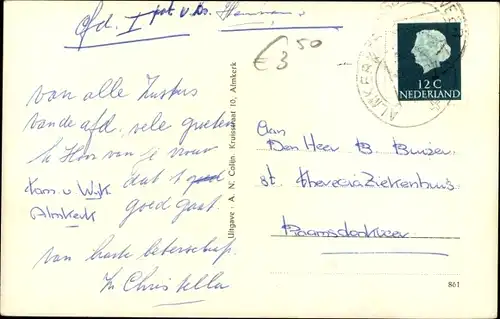 afd. I
€ 3 50
van alle Zusters
van de afd. vele groeten
En Hoor van je vrouw
dat t
goed gaat.
Fam. v. Wijk
Almkerk
van harte beterschap.
Zr Christella
Uitgave : A. N. Colijn, Kruisstraat 10, Almkerk
12 C
NEDERLAND
ALMKERK
Aan
Den Heer B.
st. Theresia Ziekenhuis
Raamsdonkveer
861